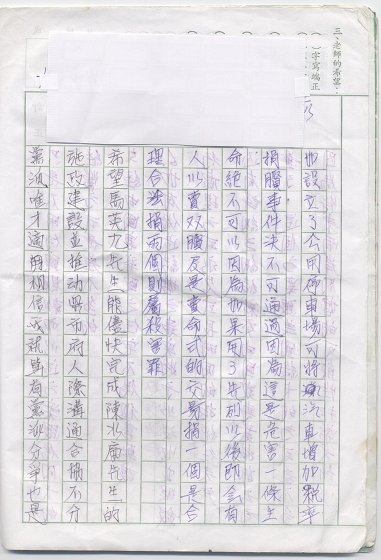 三、老師的希望：
）字寫端正
加設立了公用停車場可將汽車增加稅率
捐腰事件決不可通過因為這是危害一條生
命絕不可以因為如果開了先例以後即會有
人以賣双腰及是賣命式的交易捐一個是合
理合法捐兩個則屬殺害罪
希望馬英九先生能儘快完成陳水扁先生的
施政建設並推动縣市府人際溝通合撤不分
黨派唯才適用相信我就與有黨派分爭也是